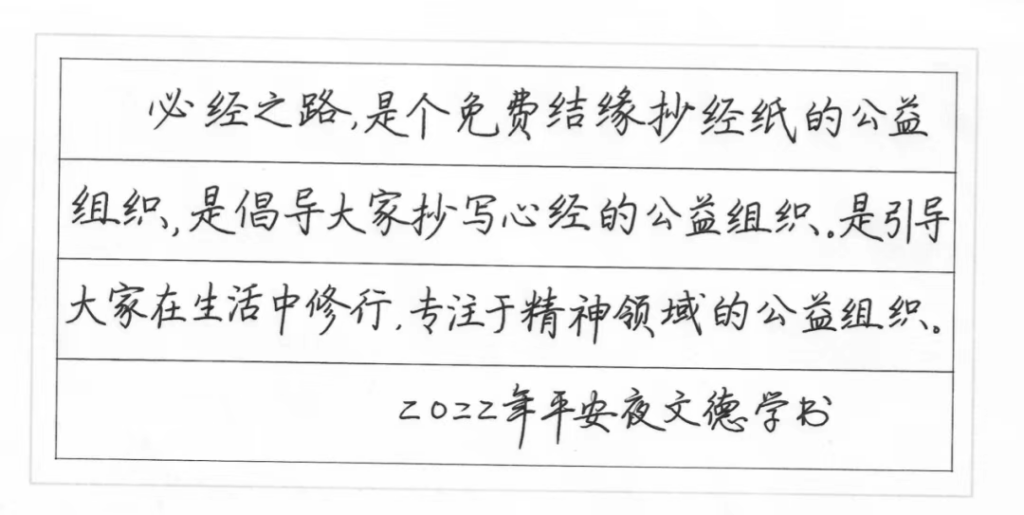 必经之路,是个免费结缘抄经纸的公益
组织,是倡导大家抄写心经的公益组织。是引导
大家在生活中修行,专注于精神领域的公益组织。
2022年平安夜文德学书